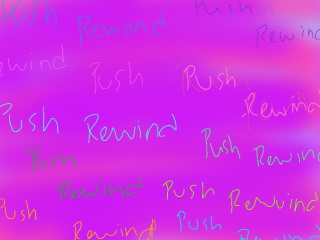 Push Rewind Push
Rewind
Rewind Push Push
Rewind
Push Rewind
Push Rewind
Push
Rewind Push Rewind
Push
Rewind Push Rewind